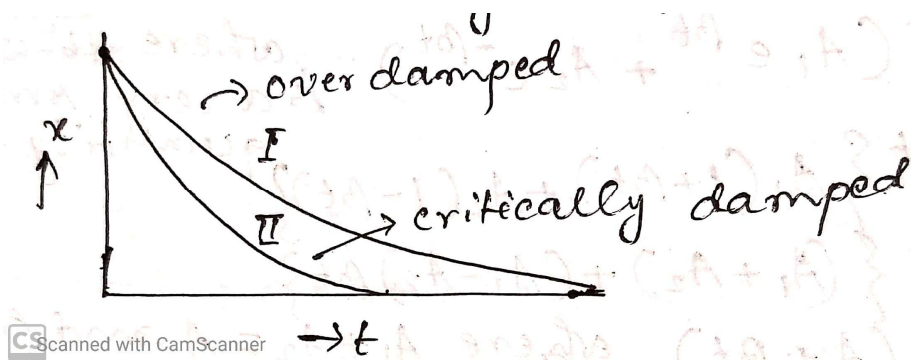 → over damped
x
↑
I
II
→ critically damped
→ t
CS Scanned with CamScanner